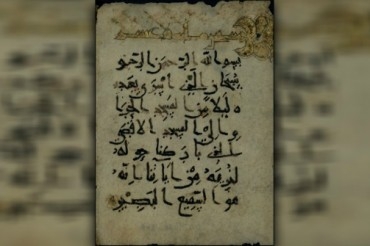 بسم الله الرحمن الرحيم
سبحان الذي اسرى بعبد
ه ليلا من المسجد الحرا
م الى المسجد الاقصى
الذي باركنا حوله
لنريه من اياتنا انه
هو السميع البصير